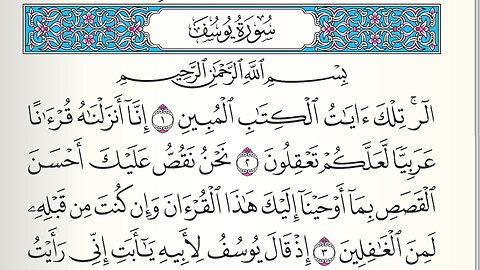 سُورَةُ يُوسُفَ
بِسْمِ اللَّهِ الرَّحْمَٰنِ الرَّحِيمِ
الٓر ۚ تِلْكَ ءَايَاتُ الْكِتَابِ الْمُبِينِ ١ إِنَّا أَنزَلْنَاهُ قُرْءَانًا
عَرَبِيًّا لَّعَلَّكُمْ تَعْقِلُونَ ٢ نَحْنُ نَقُصُّ عَلَيْكَ أَحْسَنَ
الْقَصَصِ بِمَا أَوْحَيْنَا إِلَيْكَ هَٰذَا الْقُرْءَانَ وَإِن كُنتَ مِن قَبْلِهِۦ
لَمِنَ الْغَافِلِينَ ٣ إِذْ قَالَ يُوسُفُ لِأَبِيهِ يَا أَبَتِ إِنِّي رَأَيْتُ